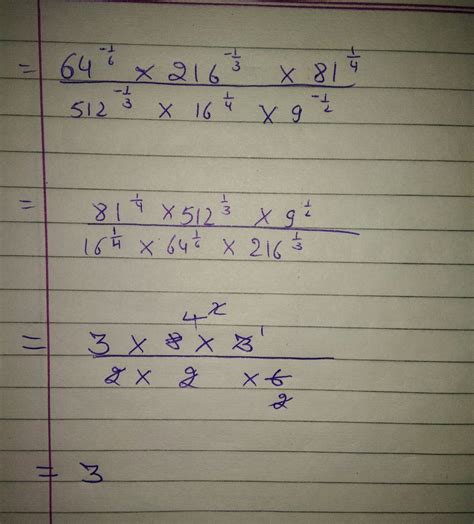 = 64^(-1/6) × 216^(-1/3) × 81^(1/4)
512^(-1/3) × 16^(1/4) × 9^(-1/2)
= 81^(1/4) × 512^(1/3) × 9^(1/2)
16^(1/4) × 64^(1/6) × 216^(1/3)
4 2
= 3 × 8 × 3 1
2 × 2 × 6
2
= 3